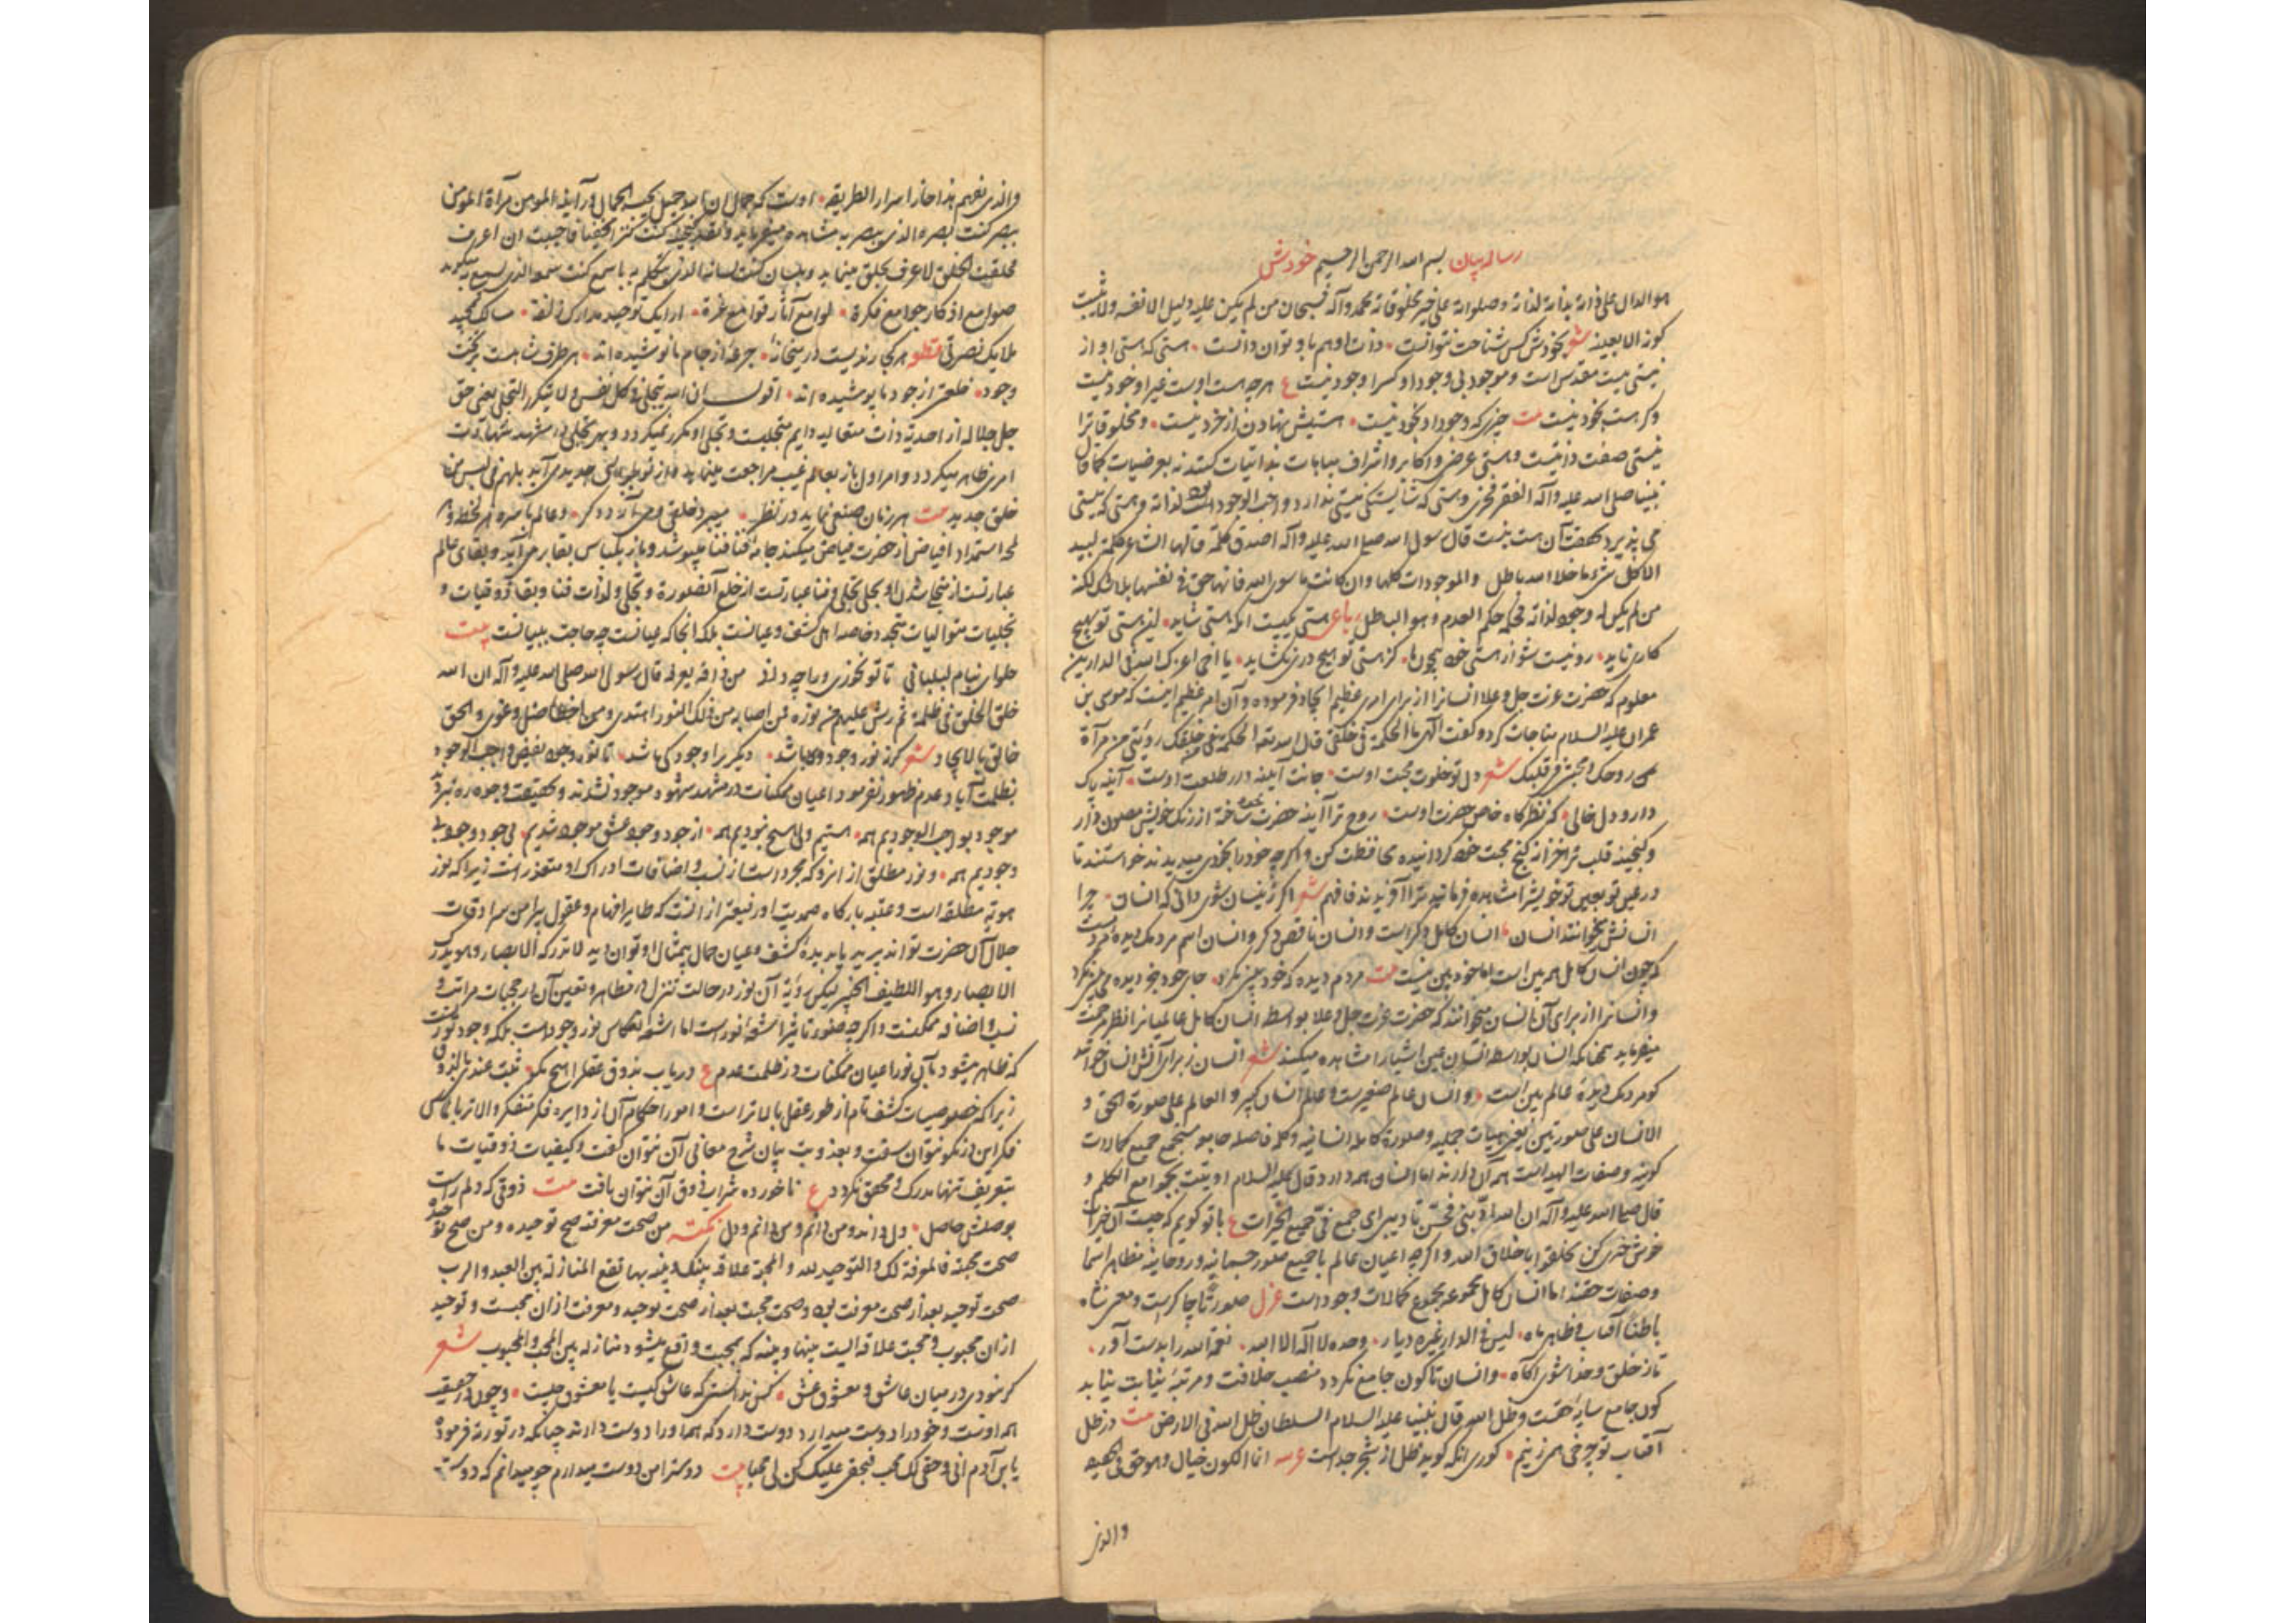 رساله بیان بسم الله الرحمن الرحیم خودش
هو الدال علی ذاته بذاته لذاته وصلواته علی خیر مخلوقاته محمد وآله فسبحان من لم یکن علیه دلیل الا نفسه ولا یثبت
کونه الا بعینه شعر بخودش کس شناخت نتوانست ذات او هم باو توان دانست هستی که هستی او از
نیستی نیست مقدس است و موجود بی وجود او کسرا وجود نیست ع هر چه هست اوست غیر او خود نیست
وگر هست بخود نیست بیت چیزی که وجود او بخود نیست هستیش نهادن از خرد نیست و مخلوقاترا
نیستی صفت ذاتیست و هستی عرضی و اکابر و اشراف مباهات بذاتیات کنند نه بعرضیات کما قال
نبینا صلی الله علیه وآله الفقر فخری وهستی که شایستگی نیستی ندارد واجب الوجود است لذاته وهستی که نیستی
می پذیرد بحقیقت آن هست نیست قال رسول الله صلی الله علیه وآله اصدق کلمة قالها الشاعر کلمة لبید
الا کل شیء ما خلا الله باطل والموجودات کلها وان کانت ما سوی الله فانها حق فی نفسها بلا شک لکنه
من لم یکن له وجود لذاته فحکمه حکم العدم وهو الباطل رباعی هستی یکیست آنکه هستی شاید این هستی تو بهیچ
کاری ناید رو نیست شو از هستی خود همچون ما کز هستی تو هیچ دری نگشاید یا اخی اعزک الله فی الدارین
معلوم که حضرت عزت جل وعلا انسانرا از برای امری عظیم ایجاد فرموده و آن امر عظیم اینست که موسی بن
عمران علیه السلام مناجات کرد و گفت الهی ما الحکمة فی خلقی قال الله تعالی الحکمة فی خلقک رؤیتی فی مرآة
روحک ومحبتی فی قلبک شعر دل تو خلوت محبت اوست جانت آینه دار طلعت اوست آینه پاک
دار و دل خالی که نظرگاه خاص حضرت اوست روح ترا آینه حضرت خود ساخته از زنگ خویش مصون دار
و گنجینه قلب ترا مخزن گنج محبت خود گردانیده محافظت کن و اگر چه خود را بخود میدیدند خواستند تا
در عین تو بعین تو خویشرا مشاهده فرمایند ترا آفریدند فافهم شعر اگر ز نیسان شوی دانی که انسان چرا
انسانش میخوانند انسان انسان کامل دگر است و انسان ناقص دگر و انسان اسم مردمک دیده است
که چون انسان کامل همه بین است اما خود بین نیست بیت مردم دیده که خود بین نبود جای خود جز دیده مبین نبود
و انسانرا از برای آن انسان میخوانند که حضرت عزت جل وعلا بواسطه انسان کامل عالمیانرا نظر رحمت
میفرماید همچنانکه انسان بواسطه انسان عین اشیا را مشاهده میکند شعر انسان ز برای آنش انسان خوانند
کو مردمک دیدۀ عالم بین است و انسان عالم صغیرست و عالم انسان کبیر و العالم علی صورة الحق و
الانسان علی صورتین یعنی هیات جمیله و صورة کامله انسانیه و کلمه فاصله جامعه مستجمع جمیع کمالات
کونیه و صفات الهیه است همه آن دارند اما انسان همه دارد وقال علیه السلام اوتیت بجوامع الکلم و
قال صلی الله علیه وآله ان الله ادبنی فحسن تادیبی ای جمع فی جمیع الخیرات ع با تو گویم که چیست آن خیرات
خوش خلق کن تخلقوا باخلاق الله واگر چه اعیان عالم با جمیع صور جسمانیه و روحانیه مظاهر اسما
وصفات حقند اما انسان کامل مجموعه مجموع کمالات وجود است غزل صورتا چاکرست و معنی شاه
باطنا آفتاب و ظاهر ماه لیس فی الدار غیره دیار وحده لا اله الا الله نعمة الله را بدست آور
تا ز خلق وخدا شوی آگاه وانسان تا کون جامع نگردد منصب خلافت ومرتبه نیابت نیابد
کون جامع سایه حقست وظل الله قال نبینا علیه السلام السلطان ظل الله فی الارض بیت در ظل
آفتاب تو چرخی همی زنیم کوری آنکه گوید ظل از شجر جداست عربیه انما الکون خیال وهو حق فی الحقیقه
والذی
والذی یفهم هذا حاز اسرار الطریقه اوست که جمال ان الله جمیل یحب الجمال در آینه المومن مرآة المومن
ببصر کنت بصره الذی یبصر به مشاهده میفرماید و بقید محبت کنت کنزا مخفیا فاحببت ان اعرف
فخلقت الخلق لاعرف بخلق مینماید وبلسان کنت لسانه الذی یتکلم به با سمع کنت سمعه الذی یسمع به میگوید
صوامع اذکار جوامع فکرة لوامع آثار قوامع غرة ارایک توحید مدارک زلفة مسالک تمجید
ملایک نصرتی قطعه هر کجا رندیست در میخانۀ جرعۀ از جام ما نوشیده اند هر طرف شاهست بر تخت
وجود خلعتی از جود ما پوشیده اند اقول ان الله یتجلی فی کل نفس ولا یتکرر التجلی یعنی حق
جل جلاله از احدیة ذات متعالیه دایم متجلیست وتجلی او مکرر نمیگردد وبهر تجلی در مشهد شهادت
امری ظاهر میگردد وامر اول باز بعالم غیب مراجعت مینماید بل هم فی لبس من
خلق جدید بیت هر زمان صنعی نماید در نظر میبرد خلقی و می آرد دگر وعالم باسره هر لحظه و هر
لمحه استمداد افیاض از حضرت فیاض میکند جامه فنا میپوشد وباز بلباس بقا بر می آید وبقای عالم
عبارتست از متجلی شدن او بتجلی بتجلی وفنا عبارتست از خلع آن صورة وتجلی ولذات فنا وبقا ذوقیات و
تجلیات متوالیات متجدد خاصه اهل کشف وعیانست بلکه آنجا که عیانست چه حاجت ببیانست بیت
حلوای بنام لبلبانی تا تو نخوری ورا چه دانی من ذاقه یعرفه قال رسول الله صلی الله علیه وآله ان الله
خلق الخلق فی ظلمة ثم رش علیهم من نوره فمن اصابه من ذلک النور اهتدی ومن اخطأ ضل وغوی والحق
خالق بالایجاد شعر گر نه نور وجود وی باشد دیگریرا وجود کی باشد تا نور وجود بفیض واجب الوجود
بظلمت آباد عدم ظهور نفرمود اعیان ممکنات در مشهد شهود موجود نشدند وبحقیقت وجود
موجود بواجب الوجودیم همه هستیم ولی هیچ نبودیم همه از جود وجود عشق موجود شدیم بی جود وجود بی
وجودیم همه ونور مطلق از آنرو که مجرد است از نسب واضافات ادراک او متعذر است زیرا که نور
هویه مطلقه است وعتبه بارگاه صمدیت او رفیعتر از آنست که طایر افهام وعقول پیرامن سرادقات
جلال آن حضرت تواند پرید یا بدیدۀ کشف وعیان جمال بیمثال او توان دید لا تدرکه الابصار وهو یدرک
الابصار وهو اللطیف الخبیر لیکن رؤیة آن نور در حالت تنزل در مظاهر وتعین آن در حجبات مراتب و
نسب واضافه ممکنست واگر چه صور تاثیر اشعه انور است اما اشعه انعکاس نور وجودست بلکه وجود نورست
که ظاهر میشود بآن نور اعیان ممکنات در ظلمت عدم ع دریاب بذوق عقلرا هیچ مگو
زیرا که خصوصیات کشف تام از طور عقل بالاتر است وامور احکام آن از دایره فکر متفکر والاتر بالماس
فکر این در نگو نتوان سفت وبعذوبت بیان شرح معانی آن نتوان گفت وکیفیات ذوقیات ما
بتعریف تنها مدرک ومحقق نگردد ع ناخورده شراب ذوق آن نتوان یافت بیت ذوقی که دلم راست
بوصلش حاصل دل داند ومن دانم ومن دانم ودل نکته من صحت معرفته صح توحیده ومن صح توحیده
صحت محبته فالمعرفة لک والتوحید لله والمحبة علاقة بینک وبینه بها تقع المنازلة بین العبد والرب
صحت توحید بعد از صحت معرفت بود وصحت محبت بعد از صحت توحید ومعرفت از آن محبست وتوحید
از آن محبوب ومحبت علاقه ایست بینهما وبینه که بمحبت واقع میشود منازله بین المحب والمحبوب شعر
گر نبودی در میان عاشق ومعشوق عشق کس ندانستی که عاشق کیست یا معشوق چیست وچون در حقیقت
همه اوست وخود را دوست میدارد دوست دارد که هم او را دوست دارند چنانکه در توریة فرمود
یا بن آدم انی وحقی لک محب فبحقی علیک کن لی محبا بیت دوستر امن دوست میدارم چو میدانم که دوست